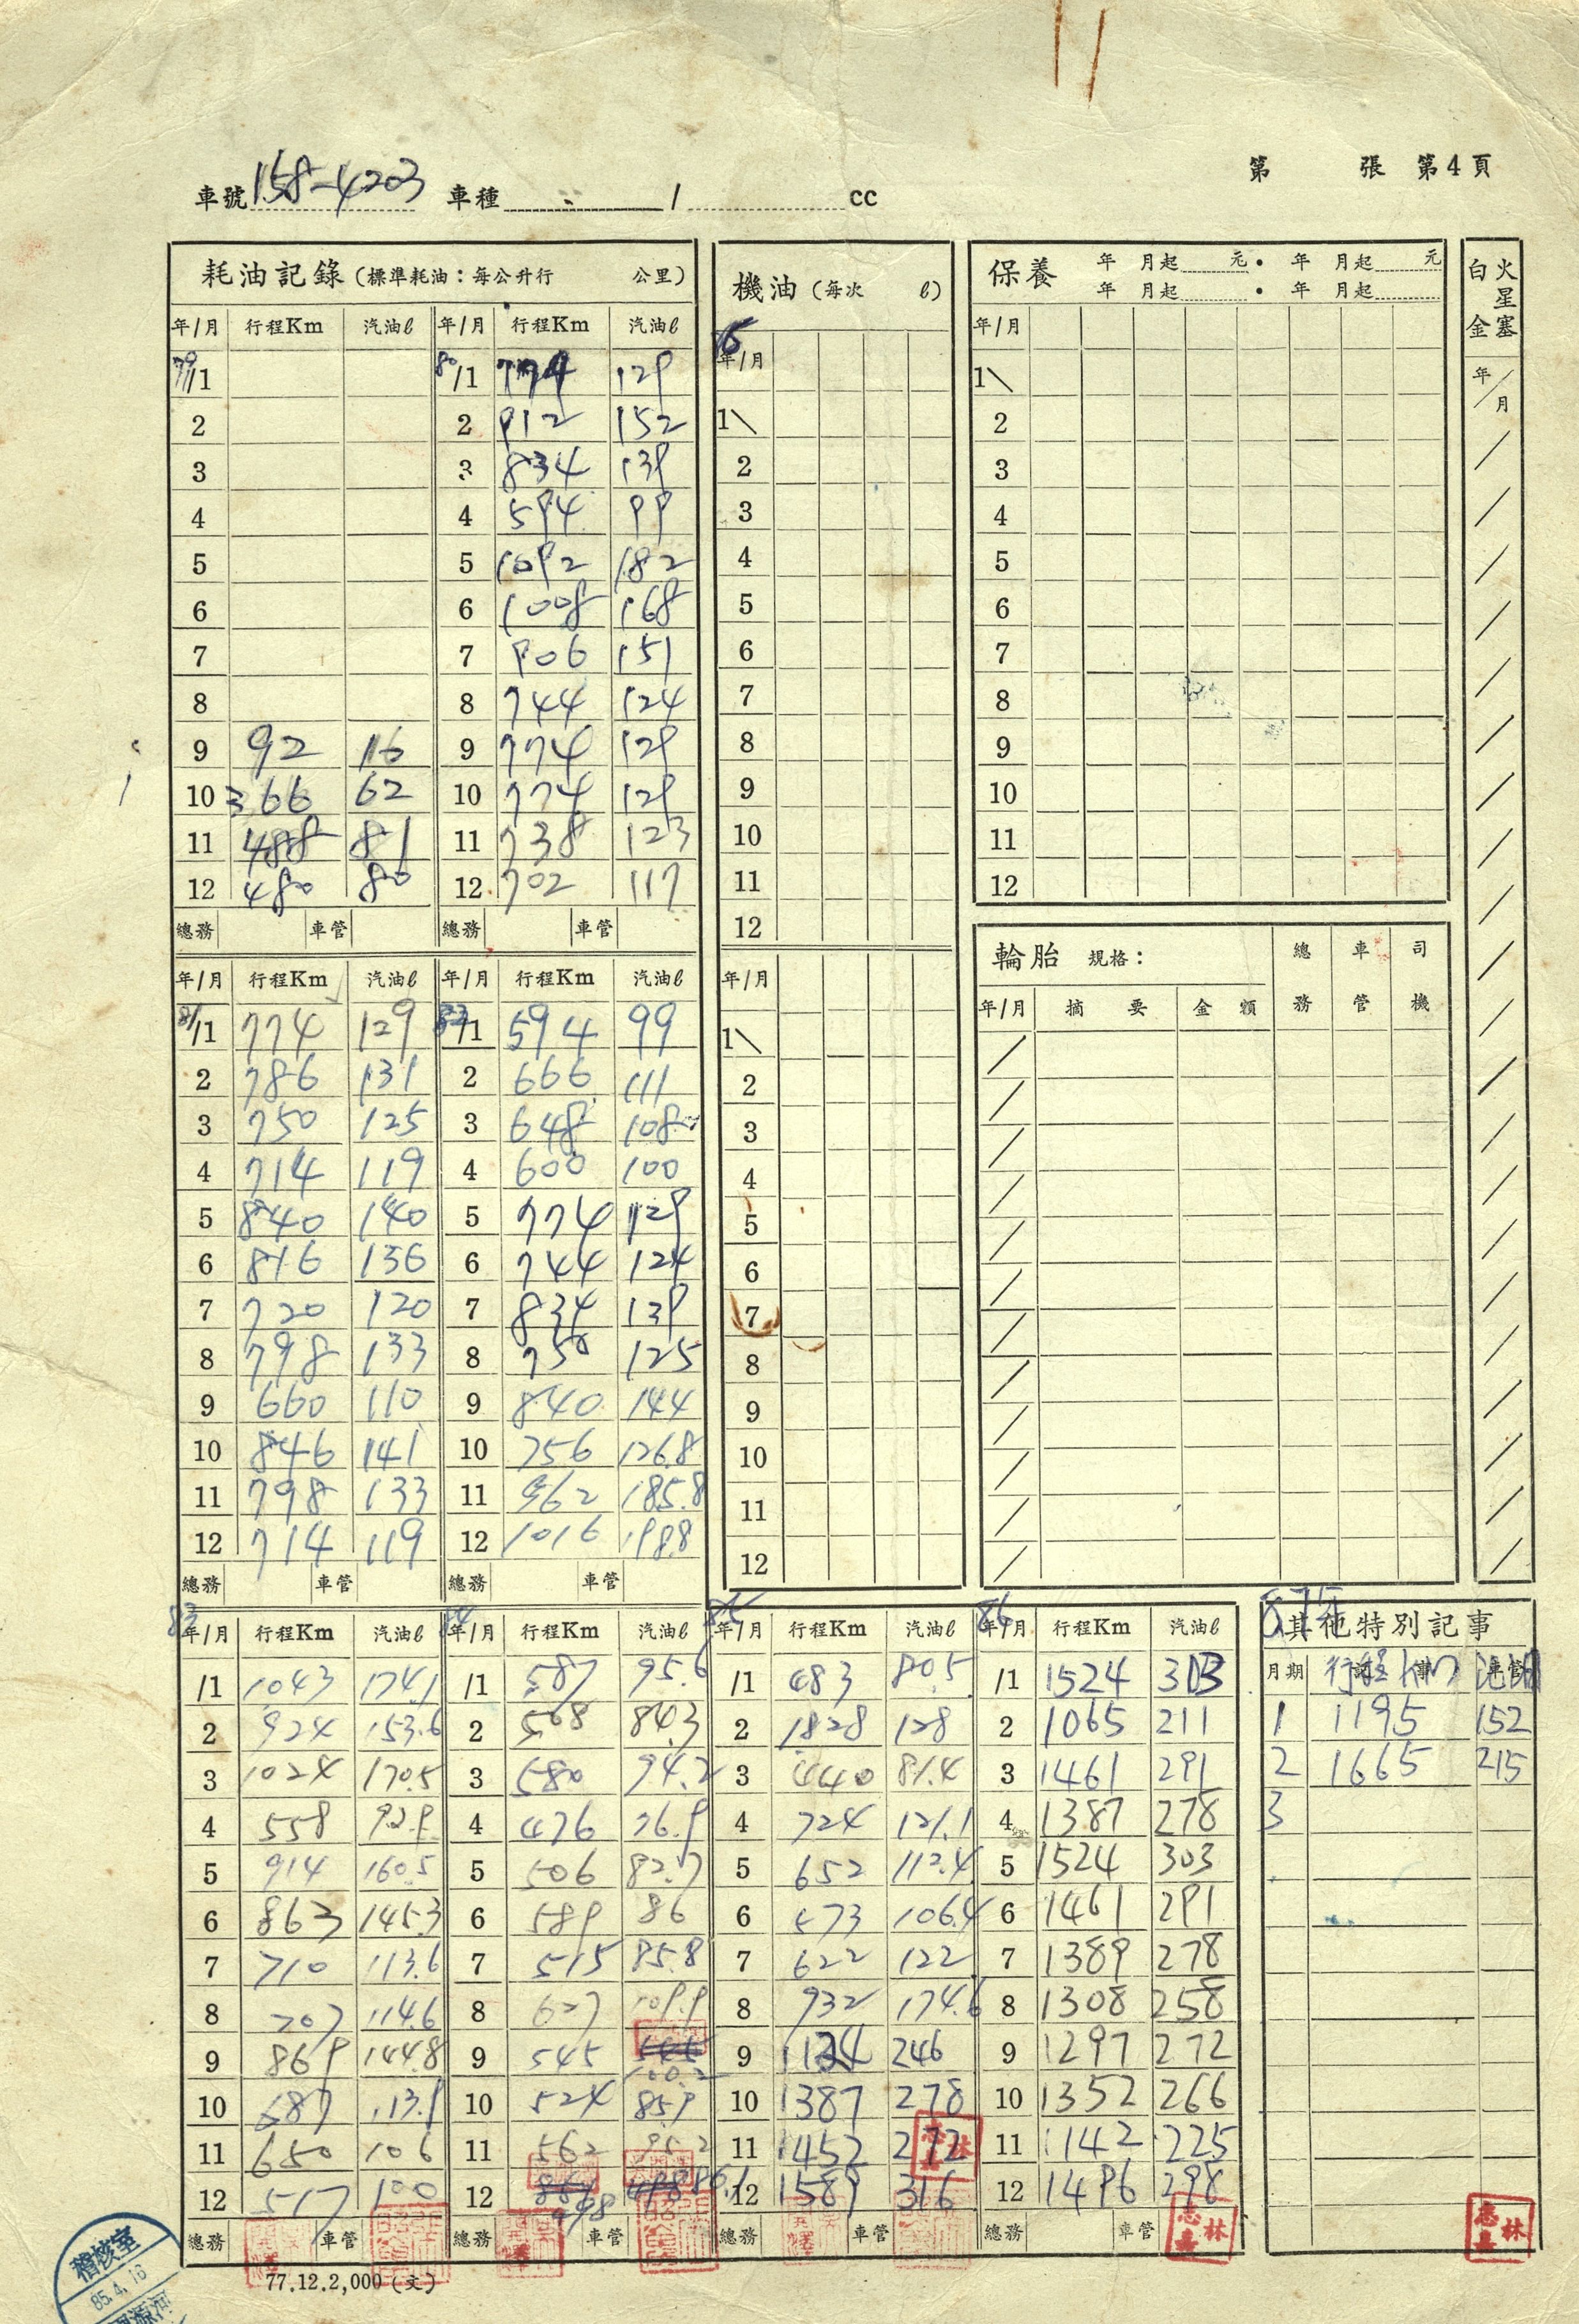 第 張 第4頁
車號 158-4203 車種 / cc
耗油記錄 (標準耗油：每公升行 公里)
年/月 行程Km 汽油ℓ 年/月 行程Km 汽油ℓ
79/1 80/1 774 129
2 2 912 152
3 3 834 139
4 4 594 99
5 5 1092 182
6 6 1008 168
7 7 906 151
8 8 744 124
9 92 16 9 774 129
10 366 62 10 774 129
11 488 81 11 738 123
12 480 80 12 702 117
總務 車管 總務 車管
年/月 行程Km 汽油ℓ 年/月 行程Km 汽油ℓ
81/1 774 129 82/1 594 99
2 786 131 2 666 111
3 750 125 3 648 108
4 714 119 4 600 100
5 840 140 5 774 129
6 816 136 6 744 124
7 720 120 7 834 139
8 798 133 8 750 125
9 660 110 9 840 144
10 846 141 10 756 126.8
11 798 133 11 962 185.8
12 714 119 12 1016 198.8
總務 車管 總務 車管
機油 (每次 ℓ)
年/月
1
2
3
4
5
6
7
8
9
10
11
12
年/月
1
2
3
4
5
6
7
8
9
10
11
12
保養 年 月起 元・ 年 月起 元
年 月起 ・ 年 月起
年/月
1
2
3
4
5
6
7
8
9
10
11
12
輪胎 規格： 總務 車管 司機
年/月 摘要 金額
白金 火星塞
年/月
83 年/月 行程Km 汽油ℓ
/1 1043 174.1
2 924 153.6
3 1024 170.5
4 558 92.9
5 914 160.5
6 863 145.3
7 710 113.6
8 707 114.6
9 869 144.8
10 687 113.9
11 650 106
12 517 100
總務 車管
84 年/月 行程Km 汽油ℓ
/1 587 95.6
2 568 84.3
3 580 94.2
4 476 76.9
5 506 82.7
6 589 86
7 515 85.8
8 627 109.9
9 545 100.2
10 524 85.9
11 562 95.2
12 498 86.1
總務 車管
85 年/月 行程Km 汽油ℓ
/1 483 80.5
2 1828 128
3 440 81.4
4 724 121.1
5 652 112.4
6 573 106.4
7 622 122
8 932 174.6
9 1124 246
10 1387 278
11 1452 272
12 1589 316
總務 車管
86 年/月 行程Km 汽油ℓ
/1 1524 303
2 1065 211
3 1461 291
4 1387 278
5 1524 303
6 1461 291
7 1389 278
8 1308 258
9 1297 272
10 1352 266
11 1142 225
12 1496 298
總務 車管
87年
其他特別記事
月期 行程Km 汽油
1 1195 152
2 1665 215
3
77.12.2,000 (文)
稽核室
85.4.16
林